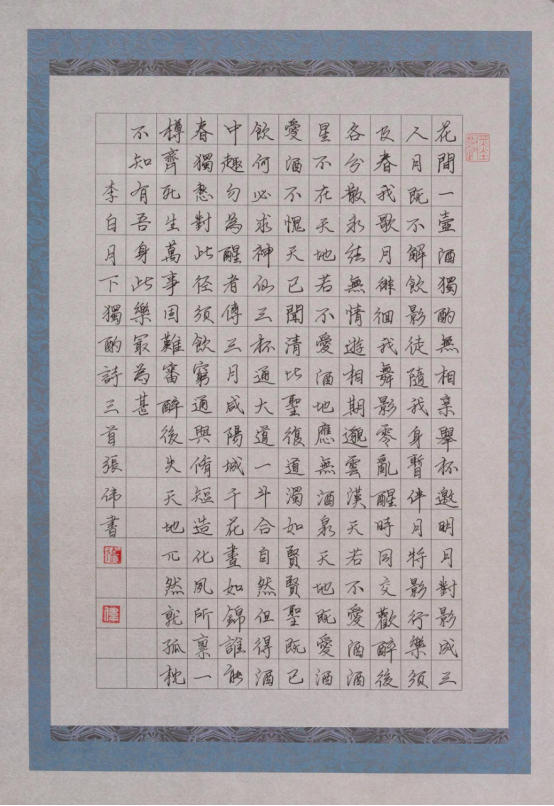 花間一壺酒獨酌無相親舉杯邀明月對影成三
人月既不解飲影徒隨我身暫伴月將影行樂須
及春我歌月徘徊我舞影零亂醒時同交歡醉後
各分散永結無情遊相期邈雲漢天若不愛酒酒
星不在天地若不愛酒地應無酒泉天地既愛酒
愛酒不愧天已聞清比聖復道濁如賢賢聖既已
飲何必求神仙三杯通大道一斗合自然但得酒
中趣勿為醒者傳三月咸陽城千花晝如錦誰能
春獨愁對此徑須飲窮通與脩短造化夙所稟一
樽齊死生萬事固難審醉後失天地兀然就孤枕
不知有吾身此樂冣為甚
李白月下獨酌詩三首張偉書